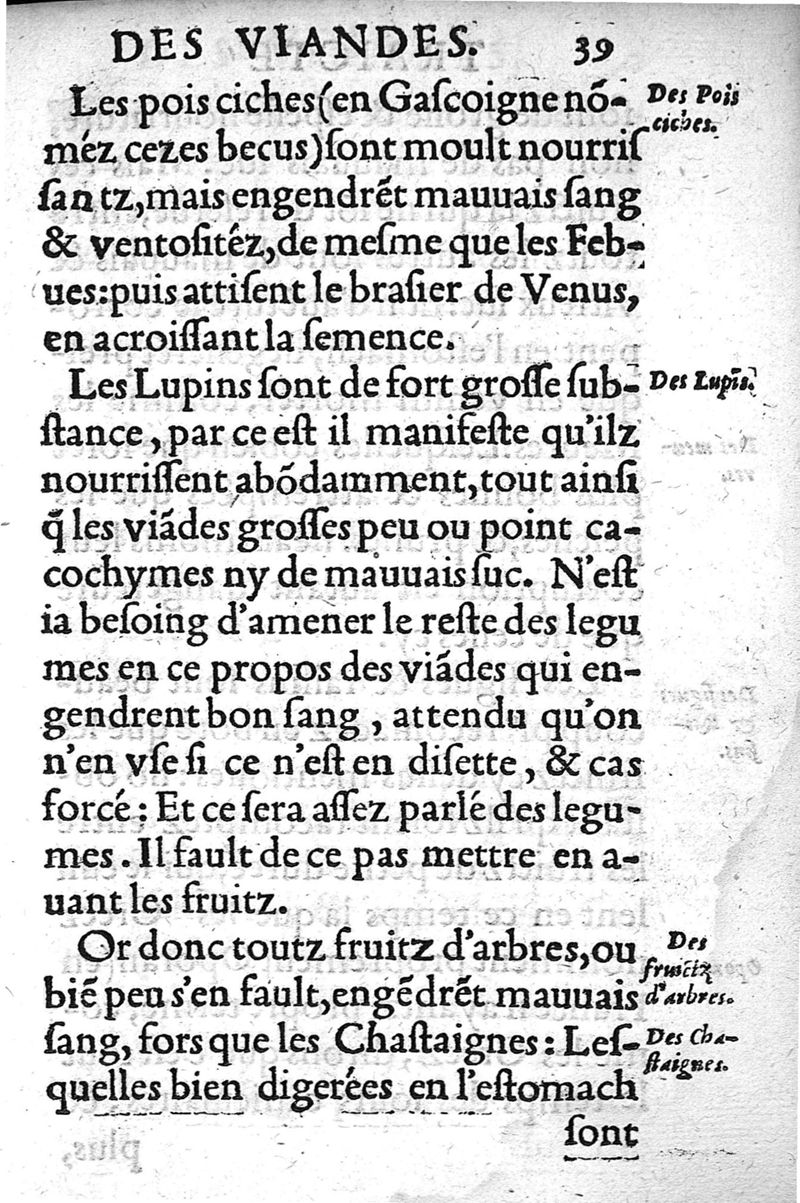 DES VIANDES. 39
Les pois ciches(en Gaſcoigne nõ-
méz cezes becus)ſont moult nourriſ
ſantz,mais engendrẽt mauuais ſang
& ventoſitéz,de meſme que les Feb-
ues:puis attiſent le braſier de Venus,
en acroiſſant la ſemence.
Des Pois
ciches.
Les Lupins ſont de fort groſſe ſub-
ſtance, par ce eſt il manifeſte qu'ilz
nourriſſent abõdamment,tout ainſi
q̃ les viãdes groſſes peu ou point ca-
cochymes ny de mauuais ſuc. N'eſt
ia beſoing d'amener le reſte des legu
mes en ce propos des viãdes qui en-
gendrent bon ſang, attendu qu'on
n'en vſe ſi ce n'eſt en diſette, & cas
forcé: Et ce ſera aſſez parlé des legu-
mes. Il fault de ce pas mettre en a-
uant les fruitz.
Des Lupĩs.
Or donc toutz fruitz d'arbres,ou
biẽ peu s'en fault,engẽdrẽt mauuais
ſang, fors que les Chaſtaignes: Leſ-
quelles bien digerées en l'eſtomach
ſont
Des
fruictz
d'arbres.
Des Cha-
ſtaignes.